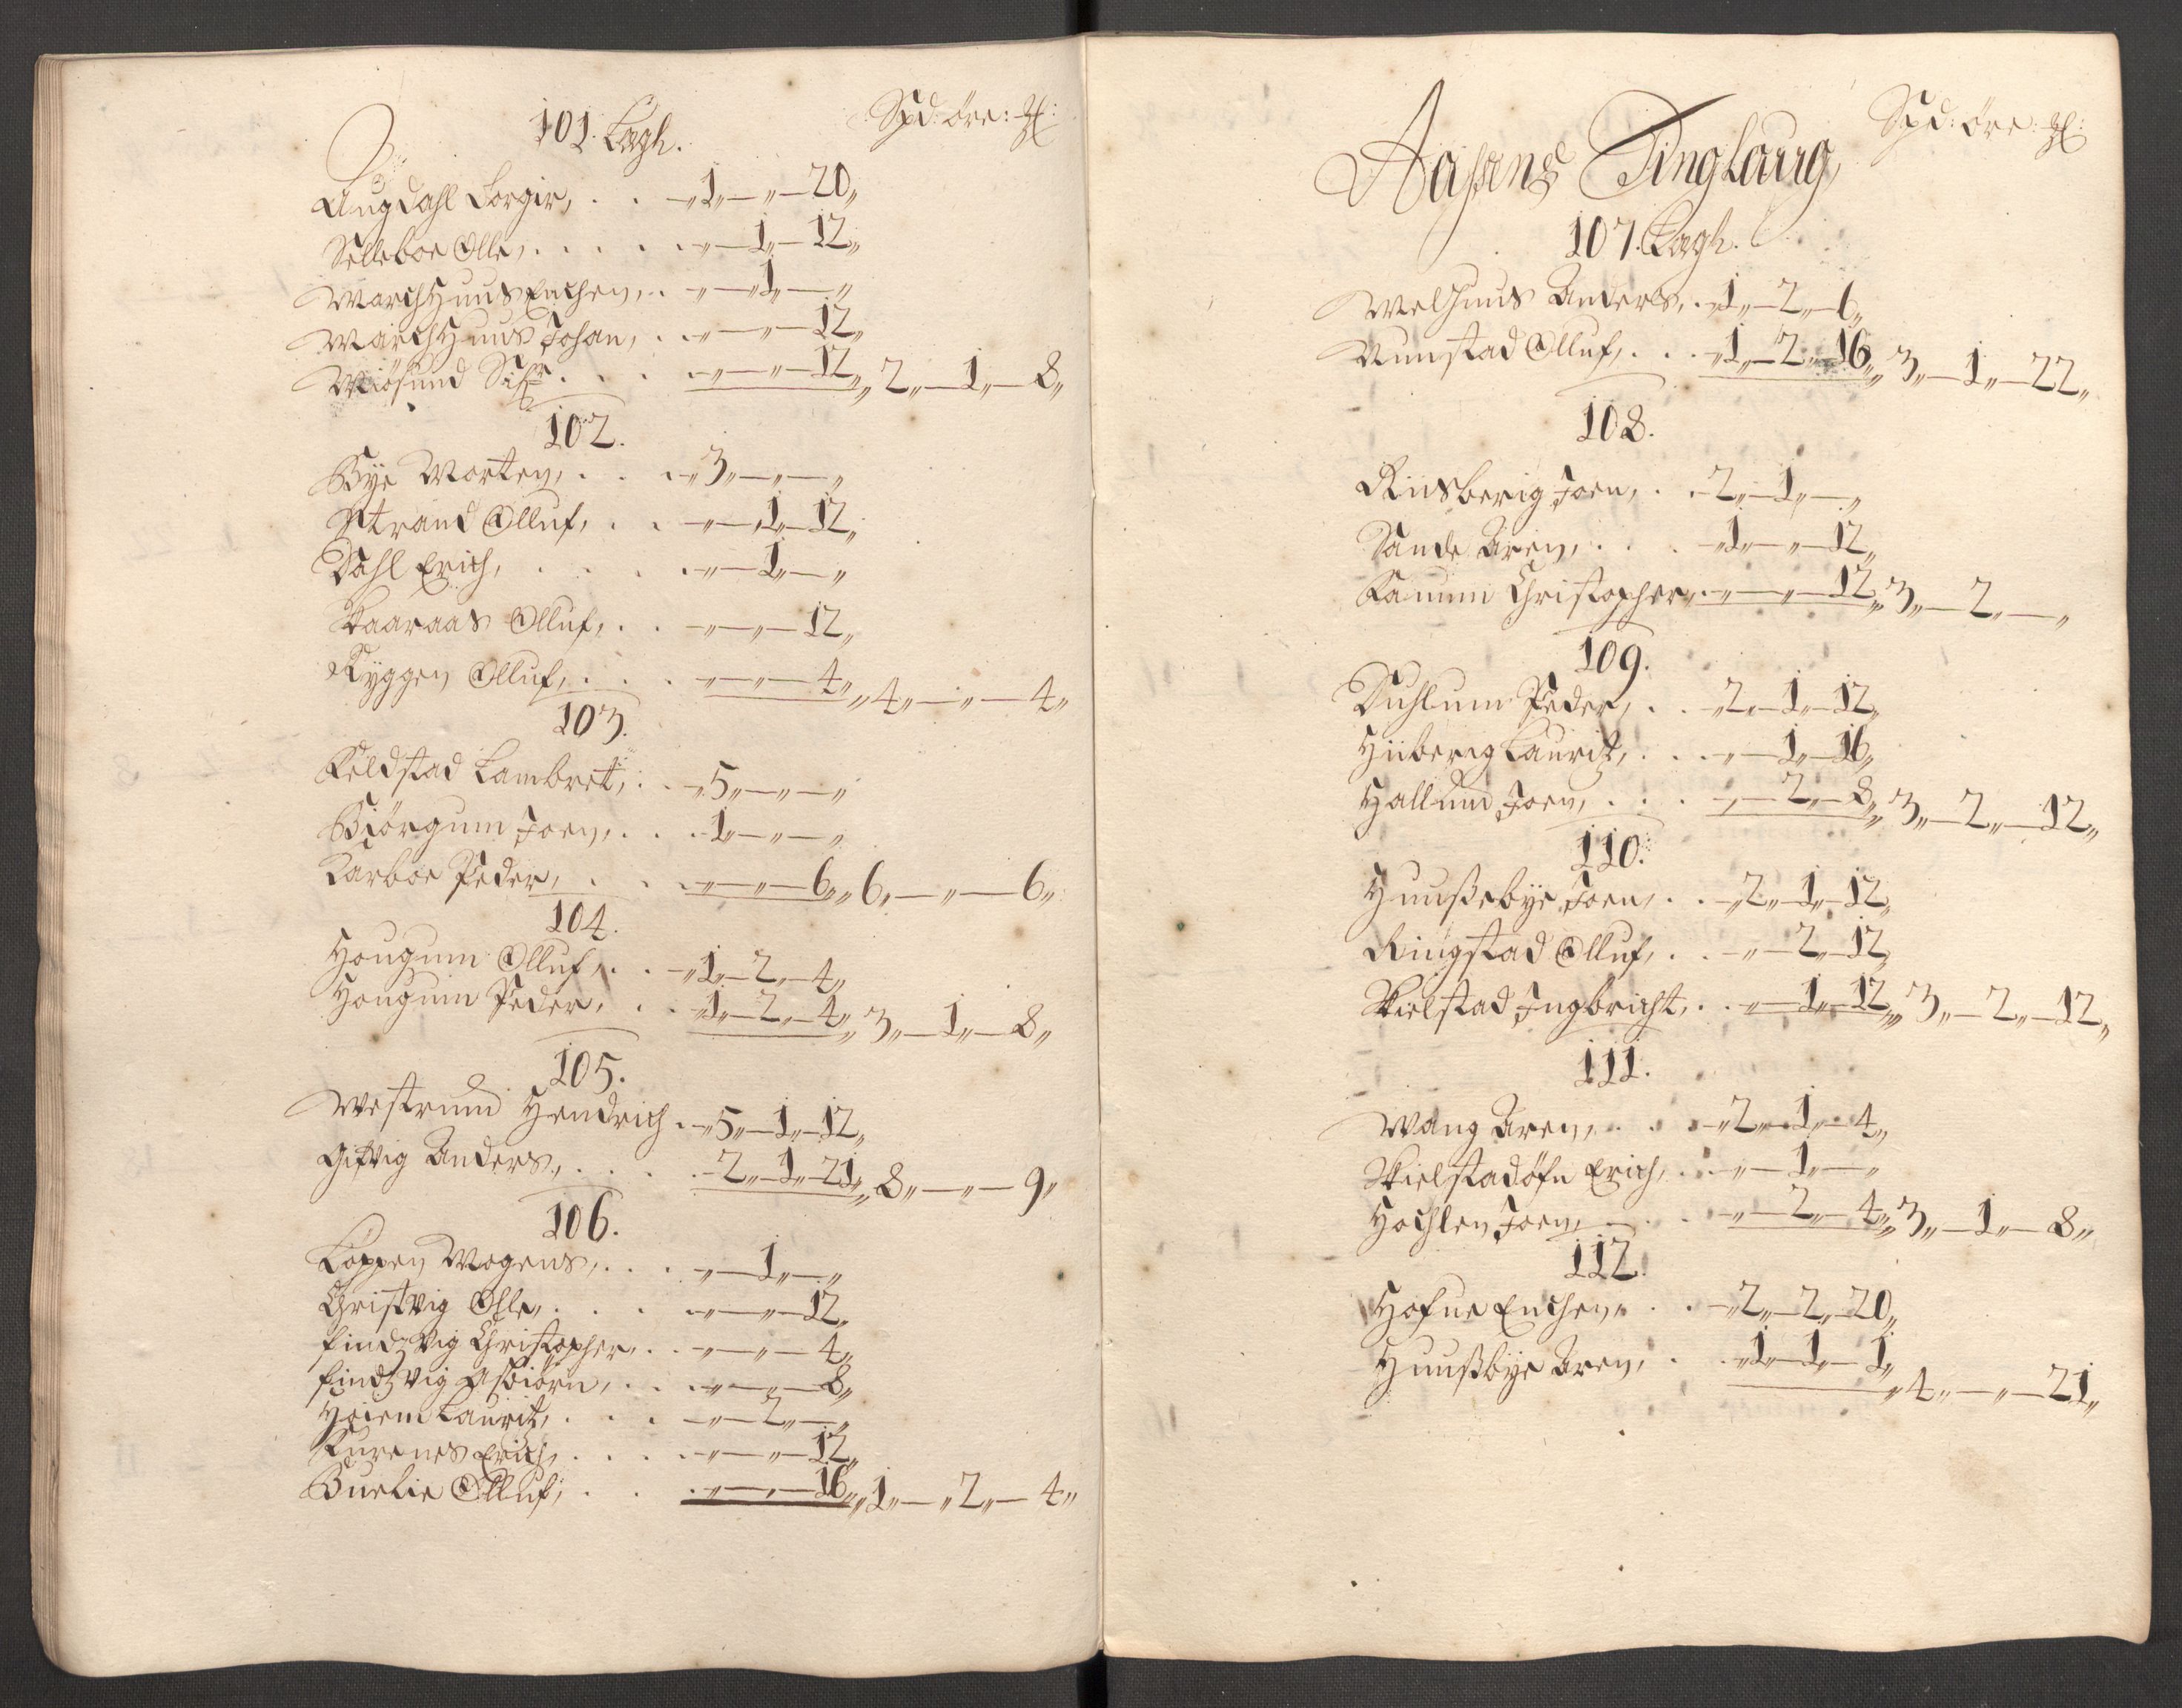 101. Lægh. Spd: öre: ꝶ:
Augdahl Torgir, . . „1„—„—20„
Selleboe Olle, . . . . . „—1„—12„
Warchhuus Enchen, . . „—1„—„
Warchhuus Johan, . . „—„—12„
Miösund Sifr . . . . „—„—12„ 2„—1„—8„
102.
Bye Morten, . . . „3„—„—„
Strand Olluf, . . „—1„—12„
Dahl Erich, . . . . . „—1„—„
Kaaraas Olluf, . . „—„—12„
Ryggen Olluf, . . . „—„—4„ 4„—„—4„
103.
Feldstad Lambret, . . „5„—„—„
Biörgum Joen, . . . 1„—„—„
Karboe Peder, . . . „—„—6„ 6„—„—6„
104.
Hougum Olluf, . . „1„—2„—4„
Hougum Peder, . . „1„—2„—4„ 3„—1„—8„
105.
Westrum Hendrich . „5„—1„—12„
Gifvig Anders, . . . . 2„—1„—21„ 8„—„—9„
106.
Loppen Mogens, . . . „—1„—„
Christvig Ohle, . . . . „—„—12„
Findtzvig Christopher, . . „—„—4„
Findtzvig Asbiörn, . . . „—„—8„
Höiem Lauritz, . . . „—2„—„
Furenes Erich, . . . . „—„—12„
Buelie Olluf, . . . „—„—16„ „1„—„2„—4„
Aasens Tinglaug, Spd: öre: ꝶ:
107. Lægh.
Welhuus Anders, . „1„—2„—6„
Nunstad Olluf, . . . „1„—2„—16„ 3„—1„—22„
108.
Rinsberig Joen, . . 2„—1„—„
Sande Aren, . . . „1„—„—12„
Faunum Christopher, . „—„—12„ 3„—2„—„
109.
Duhlum Peder, . . „2„—1„—12„
Hiiberig Lauritz, . . . „—1„—16„
Hallum Joen, . . . „—2„—8„ 3„—2„—12„
110.
Huussebye Joen, . . „2„—1„—12„
Ringstad Olluf, . . „—2„—12„
Skielstad Ingbricht, . . „—1„—12„ 3„—2„—12„
111.
Wang Aren, . . . „2„—1„—4„
Skielstadöfn Erich, . . „—1„—„
Hochlen Joen, . . . „—2„—4„ 3„—1„—8„
112.
Hofue Enchen, . . „2„—2„—20„
Huusbye Aren, . . „1„—1„—1„
„4„—„—21„